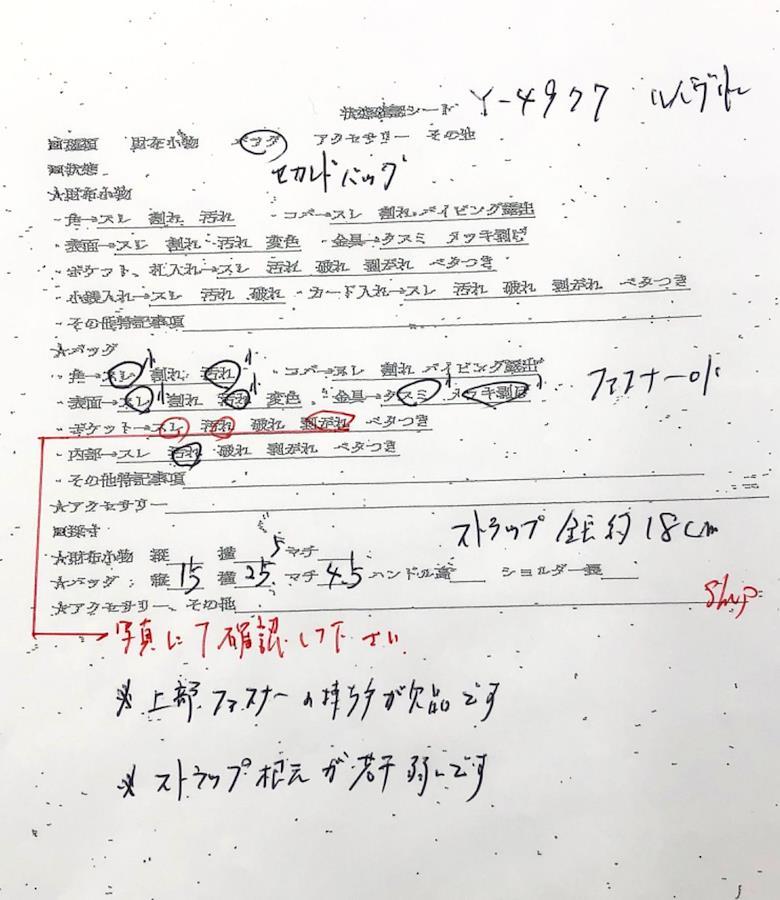 状態確認シート Y-4977 ルイヴィトン
■種類 財布小物 バッグ アクセサリー その他
■状態 セカンドバッグ
★財布小物
・角→スレ 割れ 汚れ ・コバ→スレ 割れ パイピング露出
・表面→スレ 割れ 汚れ 変色 ・金具→クスミ メッキ剥げ
・ポケット、札入れ→スレ 汚れ 破れ 剥がれ ベタつき
・小銭入れ→スレ 汚れ 破れ ・カード入れ→スレ 汚れ 破れ 剥がれ ベタつき
・その他特記事項
★バッグ
・角→スレ小 割れ 汚れ小 ・コバ→スレ 割れ パイピング露出
・表面→スレ小 割れ 汚れ小 変色 ・金具→クスミ小 メッキ剥げ小 ファスナーOK
・ポケット→スレ 汚れ 破れ 剥がれ ベタつき
・内部→スレ 汚れ 破れ 剥がれ ベタつき
・その他特記事項
★アクセサリー
■採寸 ストラップ 全長約18cm
★財布小物 縦 横 マチ
★バッグ: 縦15 横25.5 マチ4.5 ハンドル高 ショルダー長
★アクセサリー、その他
写真にて確認して下さい
※上部ファスナーの持ち手が欠品です
※ストラップ根元が若干弱いです